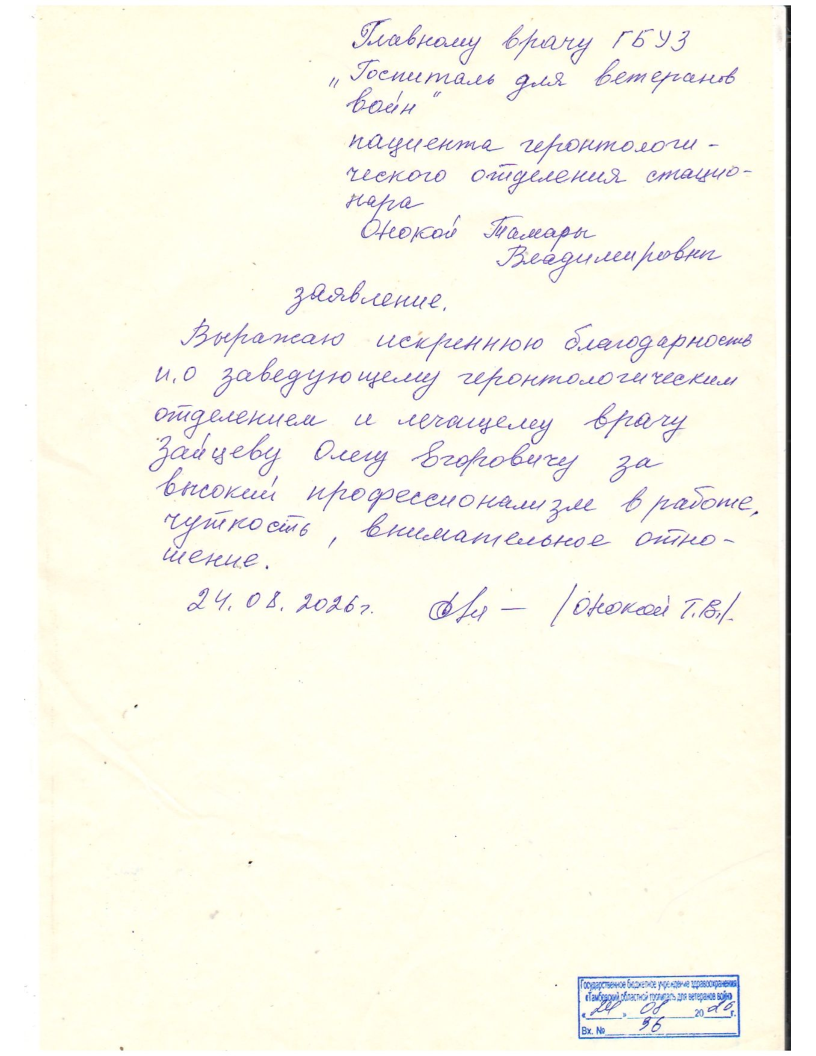 Главному врачу ГБУЗ
„Госпиталь для ветеранов
войн"
пациента геронтологи-
ческого отделения стацио-
нара
Онокой Тамары
Владимировны
заявление.
Выражаю искреннюю благодарность
и.о заведующему геронтологическим
отделением и лечащему врачу
Зайцеву Олегу Егоровичу за
высокий профессионализм в работе,
чуткость, внимательное отно-
шение.
24.08.2026г. — /Онокой Т.В./.
Государственное бюджетное учреждение здравоохранения
«Тамбовский областной госпиталь для ветеранов войн»
« 24 » 08 20 г.
Вх. № 96